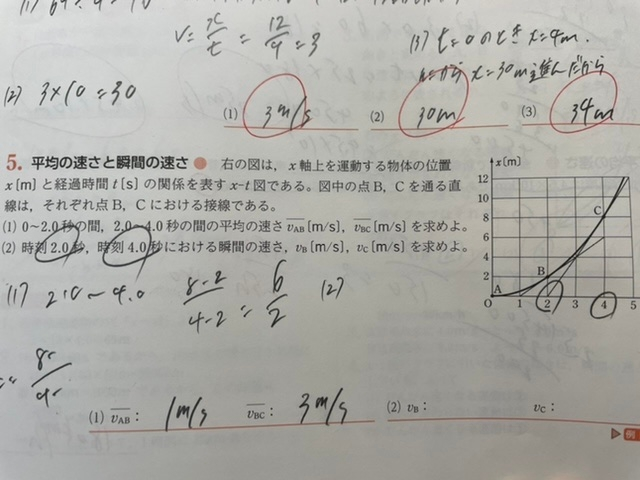 v = x/t = 12/4 = 3
(3) t=0のとき x=4m.
x=30m進んだから
(2) 3×10=30
(1) 3m/s (2) 30m (3) 34m
5. 平均の速さと瞬間の速さ ● 右の図は，x軸上を運動する物体の位置
x〔m〕と経過時間 t〔s〕の関係を表す x-t 図である。図中の点B，Cを通る直
線は，それぞれ点B，Cにおける接線である。
(1) 0〜2.0秒の間，2.0〜4.0秒の間の平均の速さ v_AB〔m/s〕，v_BC〔m/s〕を求めよ。
(2) 時刻2.0秒，時刻4.0秒における瞬間の速さ，v_B〔m/s〕，v_C〔m/s〕を求めよ。
x〔m〕
12
10
8
6
4
2
A B C
O 1 2 3 4 5
(1) 2.0〜4.0 8-2/4-2 = 6/2 (2)
(1) v_AB： 1m/s v_BC： 3m/s (2) v_B： v_C：
▶例